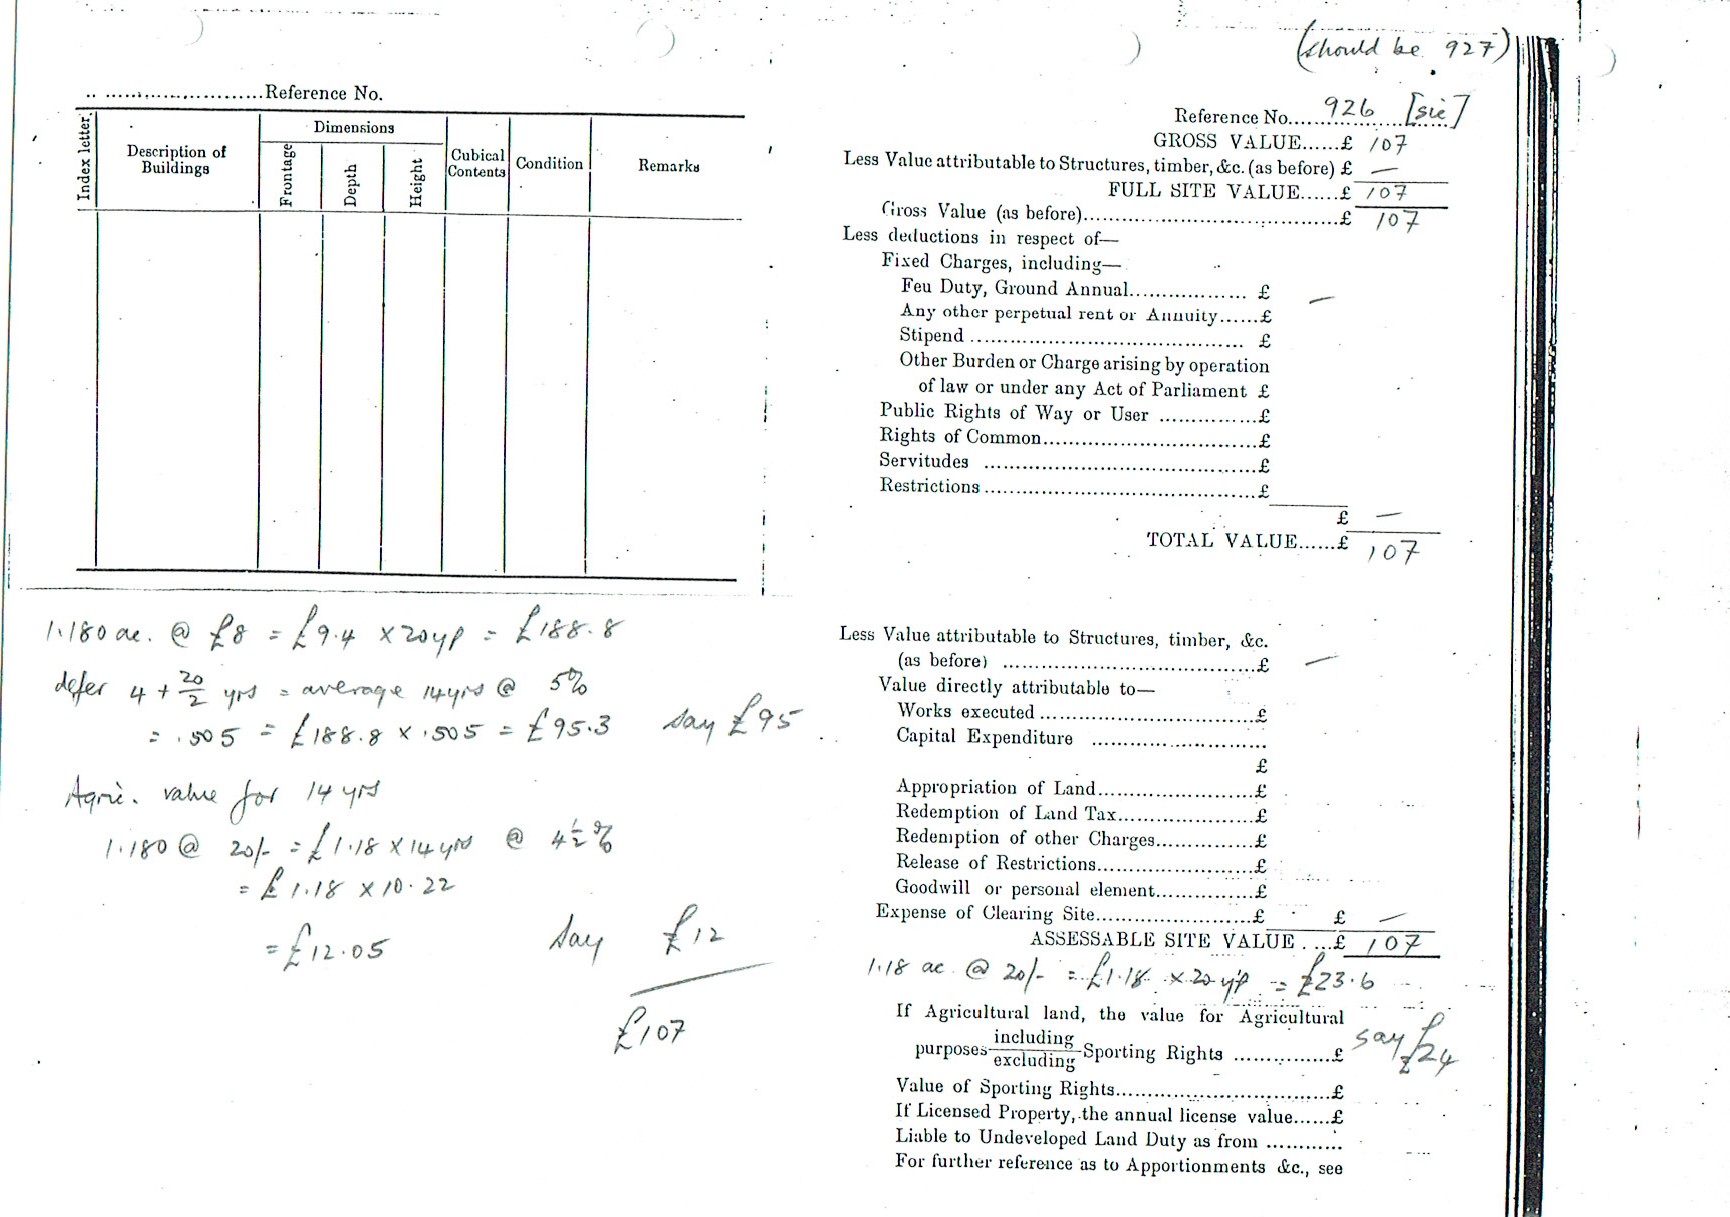 (should be 927)
.........................Reference No.
Index letter.
Description of Buildings
Dimensions
Frontage
Depth
Height
Cubical Contents
Condition
Remarks
1.180 ac. @ £8 = £9.4 × 20 yp = £188.8
defer 4 + 20/2 yrs = average 14 yrs @ 5%
= .505 = £188.8 × .505 = £95.3 say £95
Agric. value for 14 yrs
1.180 @ 20/- = £1.18 × 14 yrs @ 4½%
= £1.18 × 10.22
= £12.05 say £12
£107
Reference No. 926 [sic]
GROSS VALUE......£ 107
Less Value attributable to Structures, timber, &c. (as before) £ —
FULL SITE VALUE......£ 107
Gross Value (as before)..........£ 107
Less deductions in respect of—
Fixed Charges, including—
Feu Duty, Ground Annual.......... £ —
Any other perpetual rent or Annuity......£
Stipend .......... £
Other Burden or Charge arising by operation
of law or under any Act of Parliament £
Public Rights of Way or User ..........£
Rights of Common..........£
Servitudes ..........£
Restrictions ..........£
£ —
TOTAL VALUE......£ 107
Less Value attributable to Structures, timber, &c.
(as before) ..........£ —
Value directly attributable to—
Works executed ..........£
Capital Expenditure ..........
£
Appropriation of Land..........£
Redemption of Land Tax..........£
Redemption of other Charges..........£
Release of Restrictions..........£
Goodwill or personal element..........£
Expense of Clearing Site..........£ £ —
ASSESSABLE SITE VALUE ....£ 107
1.18 ac. @ 20/- = £1.18 × 20 yp = £23.6
If Agricultural land, the value for Agricultural
purposes including/excluding Sporting Rights ..........£ say £24
Value of Sporting Rights..........£
If Licensed Property, the annual license value......£
Liable to Undeveloped Land Duty as from ...........
For further reference as to Apportionments &c., see